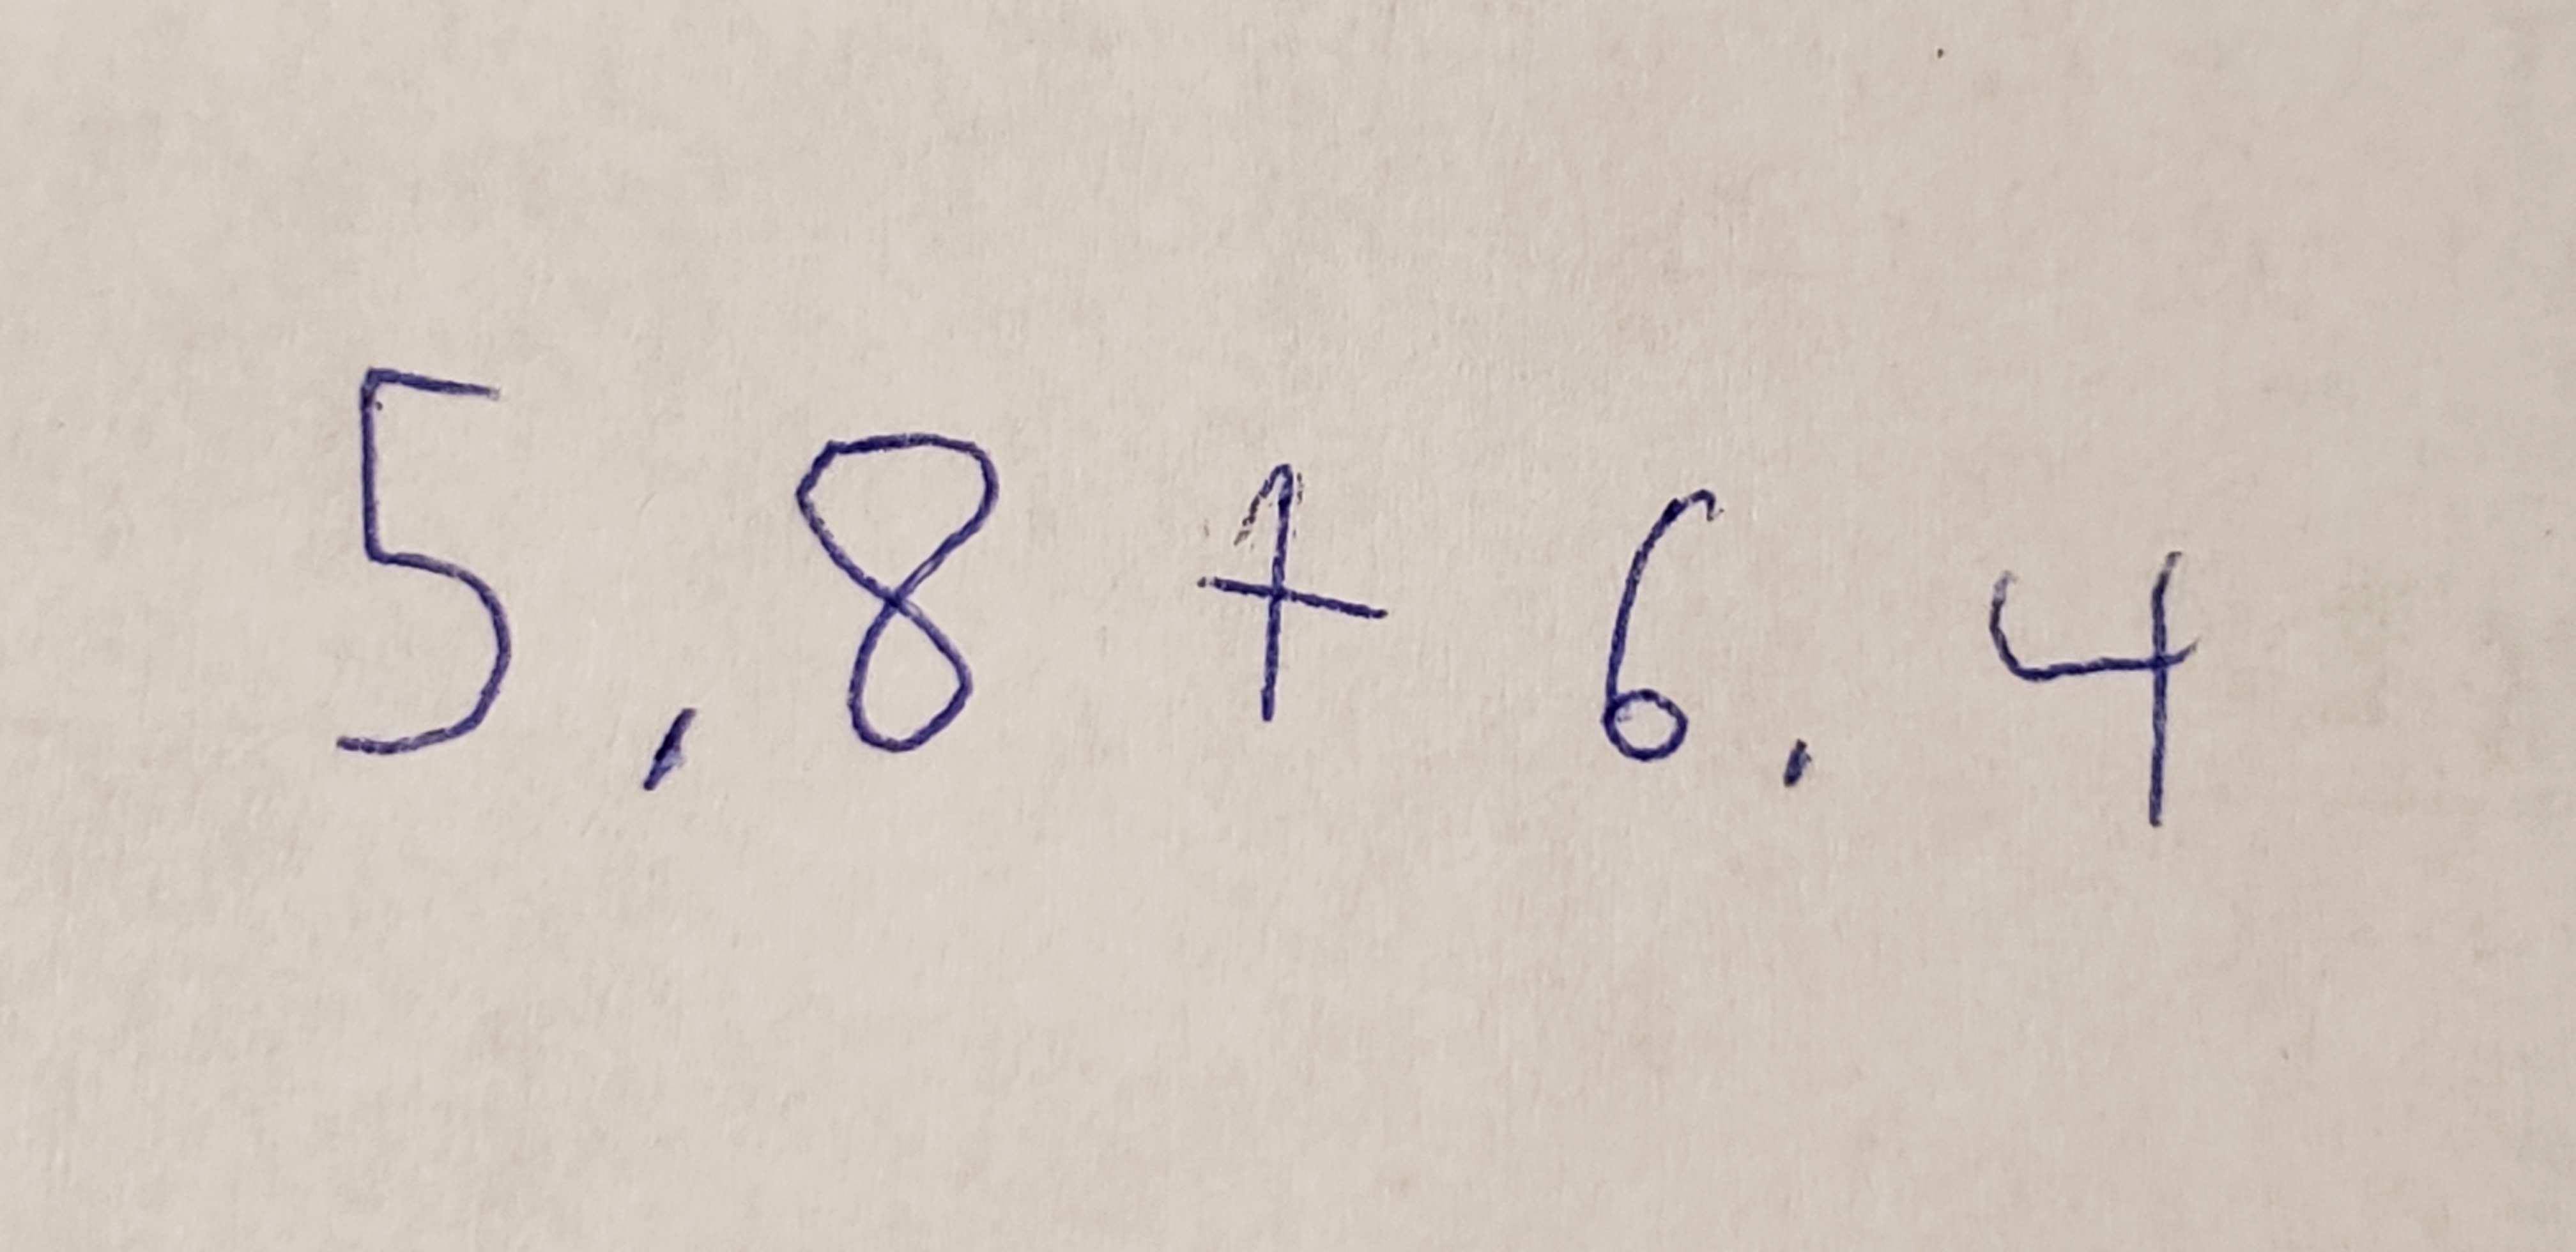 5,8 + 6.4